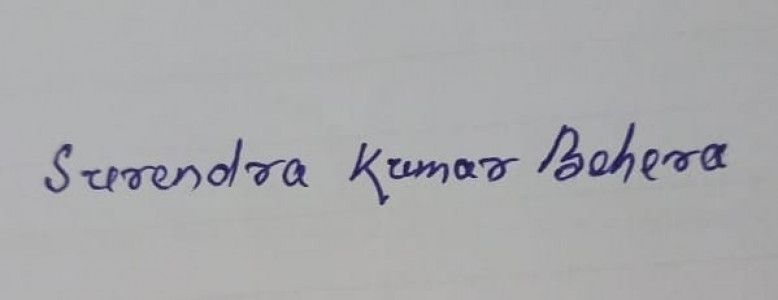 Surendra Kumar Behera